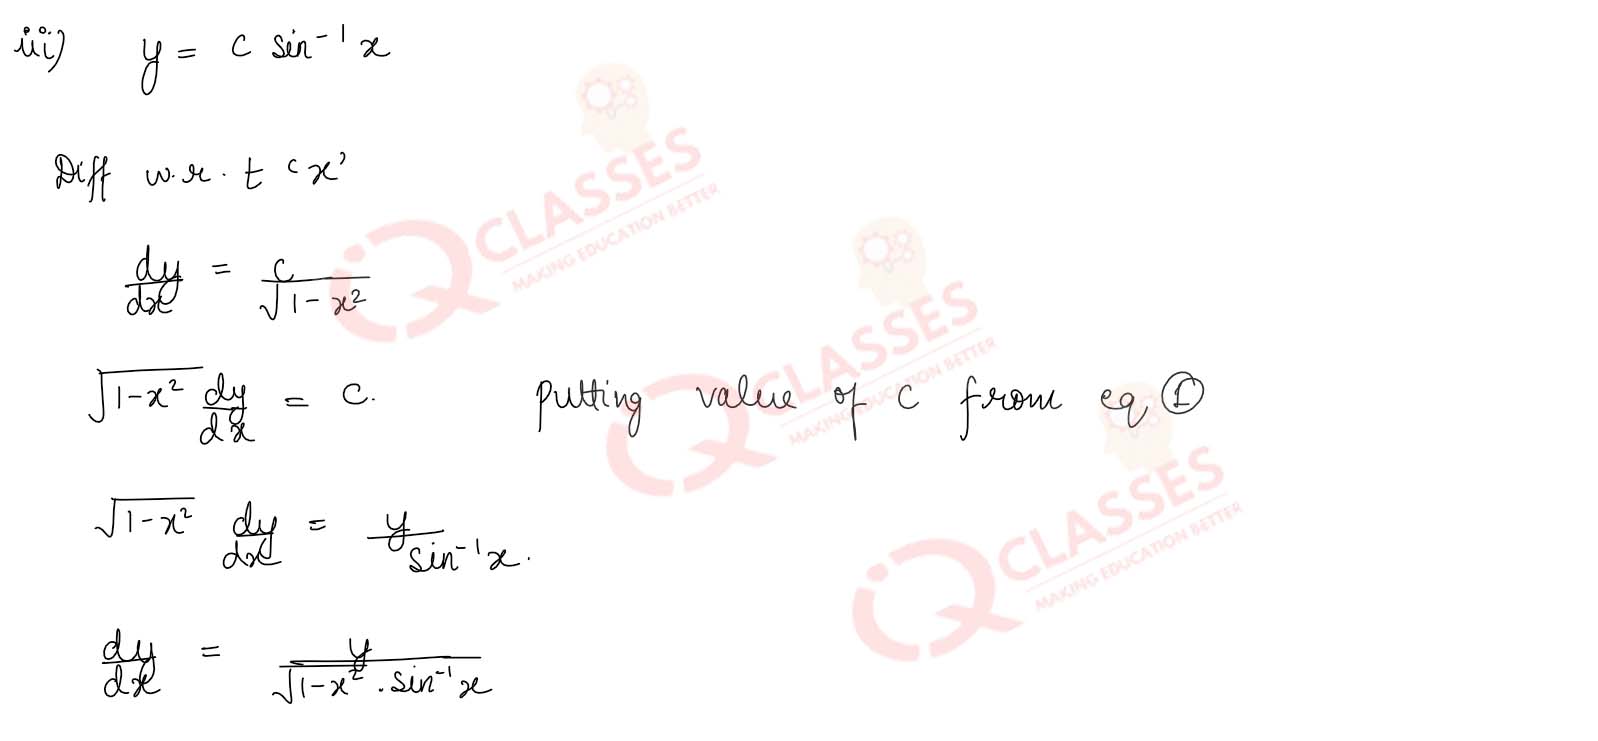 iii) y = c sin⁻¹ x
Diff w.r.t 'x'
dy/dx = c/√(1-x²)
√(1-x²) dy/dx = c. putting value of c from eq ①
√(1-x²) dy/dx = y/sin⁻¹x.
dy/dx = y/√(1-x²) . sin⁻¹x
iQ CLASSES
MAKING EDUCATION BETTER
iQ CLASSES
MAKING EDUCATION BETTER
iQ CLASSES
MAKING EDUCATION BETTER